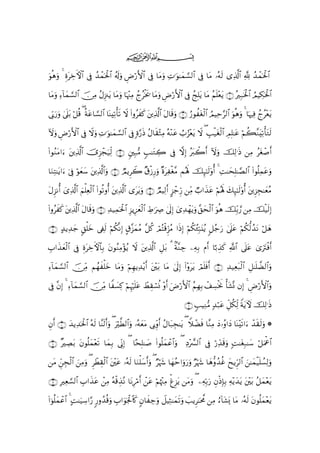 ﷽
ٱلْحَمْدُ لِلَّهِ ٱلَّذِى لَهُۥ مَا فِى ٱلسَّمَٰوَٰتِ وَمَا فِى ٱلْأَرْضِ وَلَهُ ٱلْحَمْدُ فِى ٱلْءَاخِرَةِ ۚ وَهُوَ
ٱلْحَكِيمُ ٱلْخَبِيرُ ۝ يَعْلَمُ مَا يَلِجُ فِى ٱلْأَرْضِ وَمَا يَخْرُجُ مِنْهَا وَمَا يَنزِلُ مِنَ ٱلسَّمَآءِ وَمَا
يَعْرُجُ فِيهَا ۚ وَهُوَ ٱلرَّحِيمُ ٱلْغَفُورُ ۝ وَقَالَ ٱلَّذِينَ كَفَرُوا۟ لَا تَأْتِينَا ٱلسَّاعَةُ ۖ قُلْ بَلَىٰ وَرَبِّى
لَتَأْتِيَنَّكُمْ عَٰلِمِ ٱلْغَيْبِ ۖ لَا يَعْزُبُ عَنْهُ مِثْقَالُ ذَرَّةٍ فِى ٱلسَّمَٰوَٰتِ وَلَا فِى ٱلْأَرْضِ وَلَآ
أَصْغَرُ مِن ذَٰلِكَ وَلَآ أَكْبَرُ إِلَّا فِى كِتَٰبٍ مُّبِينٍ ۝ لِّيَجْزِىَ ٱلَّذِينَ ءَامَنُوا۟
وَعَمِلُوا۟ ٱلصَّٰلِحَٰتِ ۚ أُو۟لَٰٓئِكَ لَهُم مَّغْفِرَةٌ وَرِزْقٌ كَرِيمٌ ۝ وَٱلَّذِينَ سَعَوْ فِىٓ ءَايَٰتِنَا
مُعَٰجِزِينَ أُو۟لَٰٓئِكَ لَهُمْ عَذَابٌ مِّن رِّجْزٍ أَلِيمٌ ۝ وَيَرَى ٱلَّذِينَ أُوتُوا۟ ٱلْعِلْمَ ٱلَّذِىٓ أُنزِلَ
إِلَيْكَ مِن رَّبِّكَ هُوَ ٱلْحَقَّ وَيَهْدِىٓ إِلَىٰ صِرَٰطِ ٱلْعَزِيزِ ٱلْحَمِيدِ ۝ وَقَالَ ٱلَّذِينَ كَفَرُوا۟
هَلْ نَدُلُّكُمْ عَلَىٰ رَجُلٍ يُنَبِّئُكُمْ إِذَا مُزِّقْتُمْ كُلَّ مُمَزَّقٍ إِنَّكُمْ لَفِى خَلْقٍ جَدِيدٍ ۝
أَفْتَرَىٰ عَلَى ٱللَّهِ كَذِبًا أَم بِهِۦ جِنَّةٌۢ ۗ بَلِ ٱلَّذِينَ لَا يُؤْمِنُونَ بِٱلْءَاخِرَةِ فِى ٱلْعَذَابِ
وَٱلضَّلَٰلِ ٱلْبَعِيدِ ۝ أَفَلَمْ يَرَوْا۟ إِلَىٰ مَا بَيْنَ أَيْدِيهِمْ وَمَا خَلْفَهُم مِّنَ ٱلسَّمَآءِ
وَٱلْأَرْضِ ۚ إِن نَّشَأْ نَخْسِفْ بِهِمُ ٱلْأَرْضَ أَوْ نُسْقِطْ عَلَيْهِمْ كِسَفًا مِّنَ ٱلسَّمَآءِ ۚ إِنَّ فِى
ذَٰلِكَ لَءَايَةً لِّكُلِّ عَبْدٍ مُّنِيبٍ ۝
۞ وَلَقَدْ ءَاتَيْنَا دَاوُۥدَ مِنَّا فَضْلًا ۖ يَٰجِبَالُ أَوِّبِى مَعَهُۥ وَٱلطَّيْرَ ۖ وَأَلَنَّا لَهُ ٱلْحَدِيدَ ۝ أَنِ
ٱعْمَلْ سَٰبِغَٰتٍ وَقَدِّرْ فِى ٱلسَّرْدِ ۖ وَٱعْمَلُوا۟ صَٰلِحًا ۖ إِنِّى بِمَا تَعْمَلُونَ بَصِيرٌ ۝
وَلِسُلَيْمَٰنَ ٱلرِّيحَ غُدُوُّهَا شَهْرٌ وَرَوَاحُهَا شَهْرٌ ۖ وَأَسَلْنَا لَهُۥ عَيْنَ ٱلْقِطْرِ ۖ وَمِنَ ٱلْجِنِّ مَن
يَعْمَلُ بَيْنَ يَدَيْهِ بِإِذْنِ رَبِّهِۦ ۖ وَمَن يَزِغْ مِنْهُمْ عَنْ أَمْرِنَا نُذِقْهُ مِنْ عَذَابِ ٱلسَّعِيرِ ۝
يَعْمَلُونَ لَهُۥ مَا يَشَآءُ مِن مَّحَٰرِيبَ وَتَمَٰثِيلَ وَجِفَانٍ كَٱلْجَوَابِ وَقُدُورٍ رَّاسِيَٰتٍ ۚ ٱعْمَلُوٓا۟